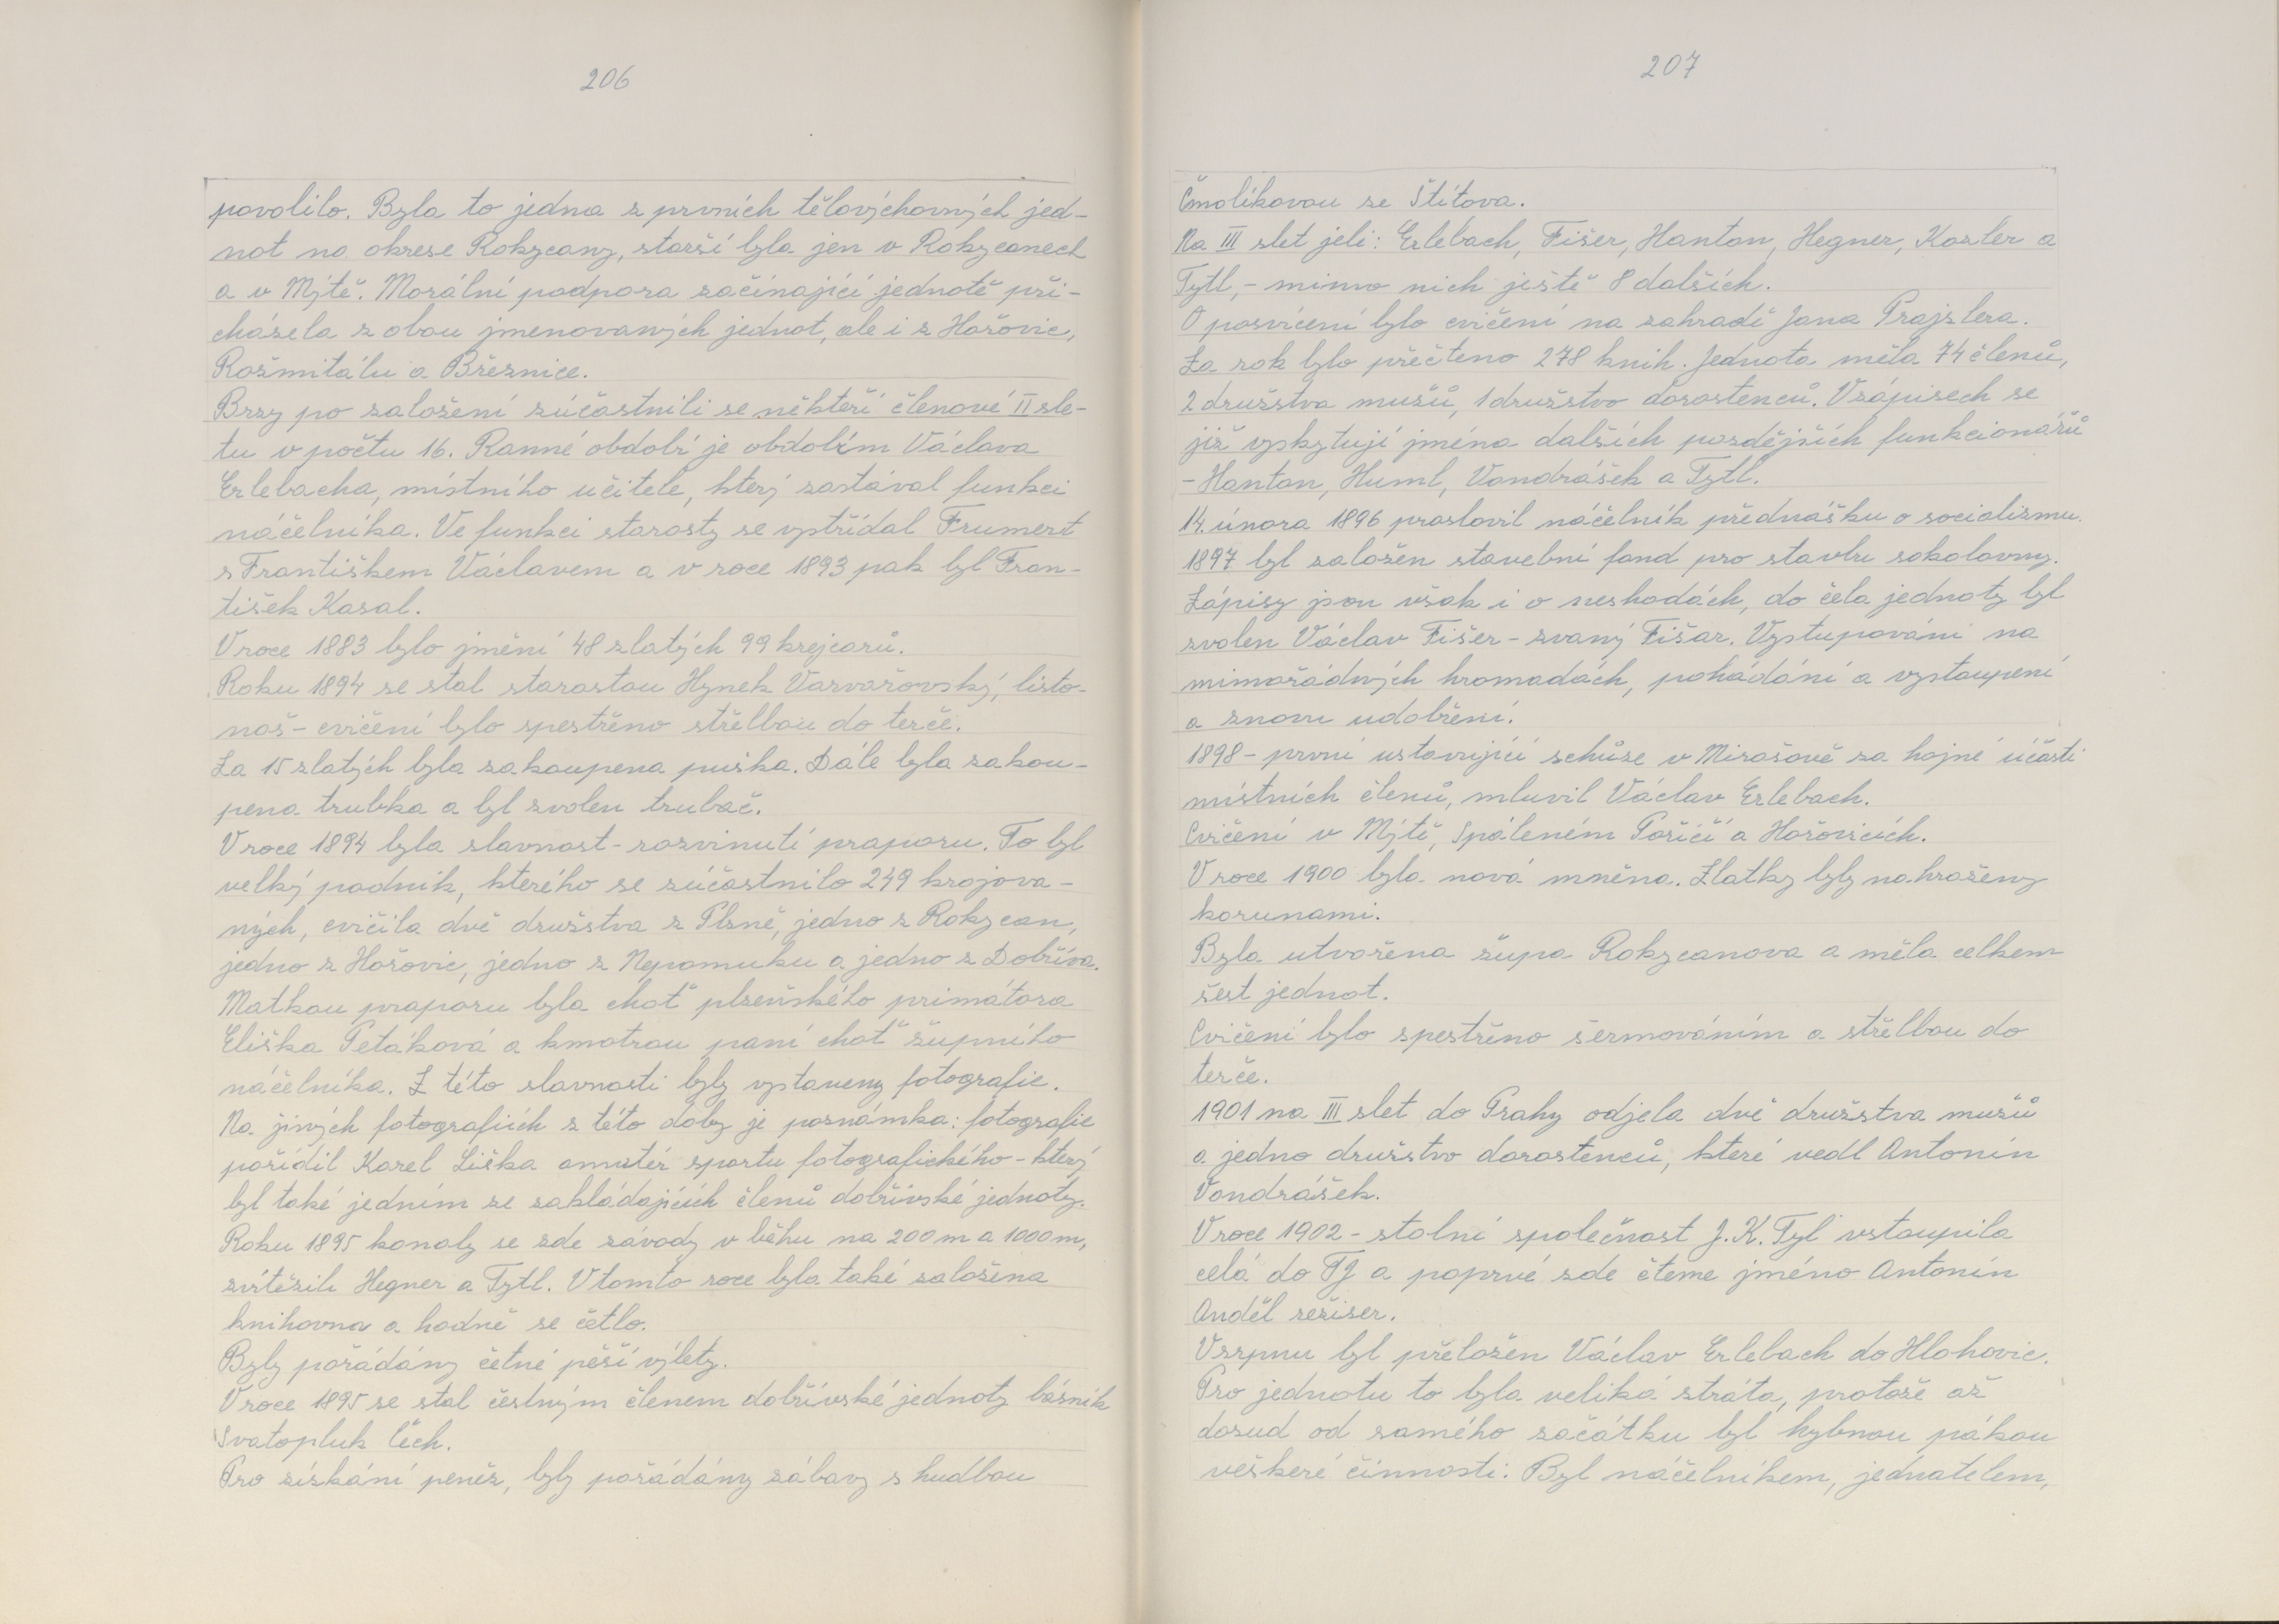 206
povolilo. Byla to jedna z prvních tělovýchovných jed-
not na okrese Rokycany, starší byla jen v Rokycanech
a v Mýtě. Morální podpora začínající jednotě při-
cházela z obou jmenovaných jednot, ale i z Hořovic,
Rožmitálu a Březnice.
Brzy po založení zúčastnili se někteří členové II sle-
tu v počtu 16. Ranné obdobi je obdobím Václava
Erlebacha, místního učitele, který zastával funkci
náčelníka. Ve funkci starosty se vystřídal Frumert
s Františkem Václavem a v roce 1893 pak byl Fran-
tišek Kasal.
V roce 1883 bylo jmění 48 zlatých 99 krejcarů.
Roku 1894 se stal starostou Hynek Varvařovský, listo-
noš - cvičení bylo spestřeno střelbou do terče.
Za 15 zlatých byla zakoupena puška. Dále byla zakou-
pena trubka a byl zvolen trubač.
V roce 1894 byla slavnost - rozvinutí praporu. To byl
velký podnik, kterého se zúčastnilo 249 krojova-
ných, cvičila dvě družstva z Plzně, jedno z Rokycan,
jedno z Hořovic, jedno z Nepomuku a jedno z Dobříva.
Matkou praporu byla choť plzeňského primátora
Eliška Petáková a kmotrou paní choť župního
náčelníka. Z této slavnosti byly vystaveny fotografie.
Na jiných fotografiích z této doby je poznámka: fotografie
pořídil Karel Liška amatér sportu fotografického - který
byl také jedním ze zakládajících členů dobřívské jednoty.
Roku 1895 konaly se zde závody v běhu na 200 m a 1000 m,
zvítězili Hegner a Tytl. V tomto roce byla také založena
knihovna a hodně se četlo.
Byly pořádány četné pěší výlety.
V roce 1895 se stal čestným členem dobřívské jednoty básník
Svatopluk Čech.
Pro získání peněz, byly pořádány zábavy s hudbou
207
Čmolíkovou ze Štítova.
Na III slet jeli: Erlebach, Fišer, Hanton, Hegner, Kozler a
Tytl, - mimo nich ještě 8 dalších.
O posvícení bylo cvičení na zahradě Jana Prajzlera.
Za rok bylo přečteno 278 knih. Jednota měla 74 členů,
2 družstva mužů, 1 družstvo dorostenců. V zápisech se
již vyskytují jména dalších pozdějších funkcionářů
- Hanton, Huml, Vondrášek a Tytl.
14. února 1896 proslovil náčelník přednášku o socialismu.
1897 byl založen stavební fond pro stavbu sokolovny.
Zápisy jsou však i o neshodách, do čela jednoty byl
zvolen Václav Fišer - zvaný Fišar. Vystupování na
mimořádných hromadách, pohádání a vystoupení
a znovu udobření.
1898 - první ustavující schůze v Mirošově za hojné účasti
místních členů, mluvil Václav Erlebach.
Cvičení v Mýtě, Spáleném Poříčí a Hořovicích.
V roce 1900 byla nová mněna. Zlatky byly nahraženy
korunami.
Byla utvořena župa Rokycanova a měla celkem
šest jednot.
Cvičení bylo spestřeno šermováním a střelbou do
terče.
1901 na III slet do Prahy odjela dvě družstva mužů
a jedno družstvo dorostenců, které vedl Antonín
Vondrášek.
V roce 1902 - stolní společnost J. K. Tyl vstoupila
celá do TJ a poprvé zde čteme jméno Antonín
Anděl režiser.
V srpnu byl přeložen Václav Erlebach do Hlohovic.
Pro jednotu to byla veliká ztráta, protože až
dosud od samého začátku byl hybnou pákou
veškeré činnosti. Byl náčelníkem, jednatelem,